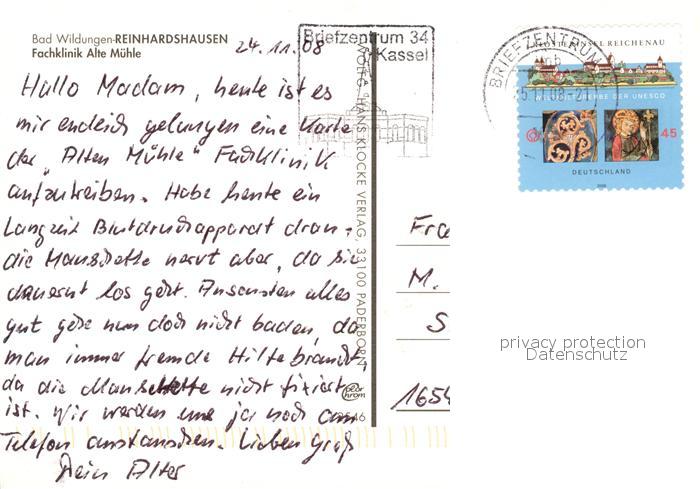 Bad Wildungen-REINHARDSHAUSEN
Fachklinik Alte Mühle
24.11.08
Hallo Madam, heute ist es
mir endlich gelungen eine Karte
der "Alten Mühle" Fachklinik
aufzutreiben. Habe heute ein
Langzeit Blutdruckapparat dran,
die Manschette nervt aber, da sie
dauernt los geht. Ansonsten alles
gut gehe nun doch nicht baden, da
man immer fremde Hilfe braucht,
da die Manschette nicht fixiert
ist. Wir werden uns ja noch am
Telefon austauschen. Lieben Gruß
Dein Alter
WOLFG. HANS KLOCKE VERLAG, 33100 PADERBORN
Briefzentrum 34
Kassel
BRIEFZENTRUM
KLOSTERINSEL REICHENAU
WELTKULTURERBE DER UNESCO
45
DEUTSCHLAND
2008
Fra
M.
S
1654
privacy protection
Datenschutz